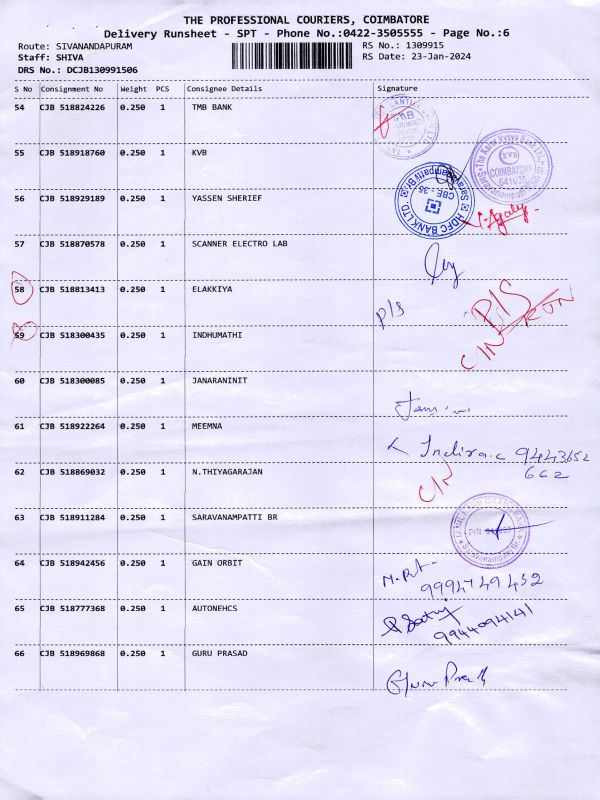 THE PROFESSIONAL COURIERS, COIMBATORE
Delivery Runsheet - SPT - Phone No.:0422-3505555 - Page No.:6
Route: SIVANANDAPURAM RS No.: 1309915
Staff: SHIVA RS Date: 23-Jan-2024
DRS No.: DCJB130991506
S No Consignment No Weight PCS Consignee Details Signature
54 CJB 518824226 0.250 1 TMB BANK
55 CJB 518918760 0.250 1 KVB
The Karur Vysya Bank Ltd.
KVB
COIMBATORE
56 CJB 518929189 0.250 1 YASSEN SHERIEF
HDFC BANK LTD
CBE - 35
57 CJB 518870578 0.250 1 SCANNER ELECTRO LAB
58 CJB 518813413 0.250 1 ELAKKIYA
P/S P/S
59 CJB 518300435 0.250 1 INDHUMATHI
C/N
60 CJB 518300085 0.250 1 JANARANINIT
61 CJB 518922264 0.250 1 MEEMNA
9443652
662
62 CJB 518869032 0.250 1 N.THIYAGARAJAN
C/N
63 CJB 518911284 0.250 1 SARAVANAMPATTI BR
64 CJB 518942456 0.250 1 GAIN ORBIT
65 CJB 518777368 0.250 1 AUTONEHCS
9944094141
66 CJB 518969868 0.250 1 GURU PRASAD